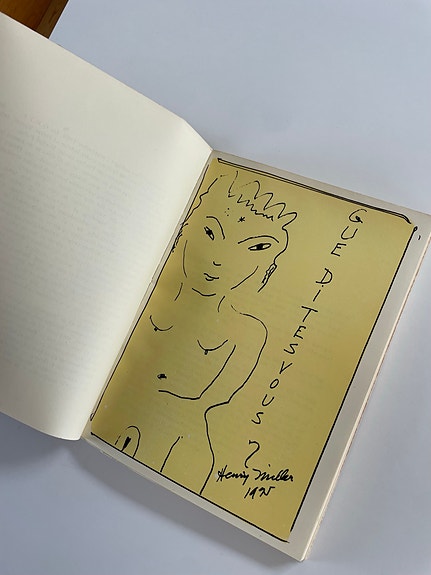 GUE DITES VOUS ?
Henry Miller